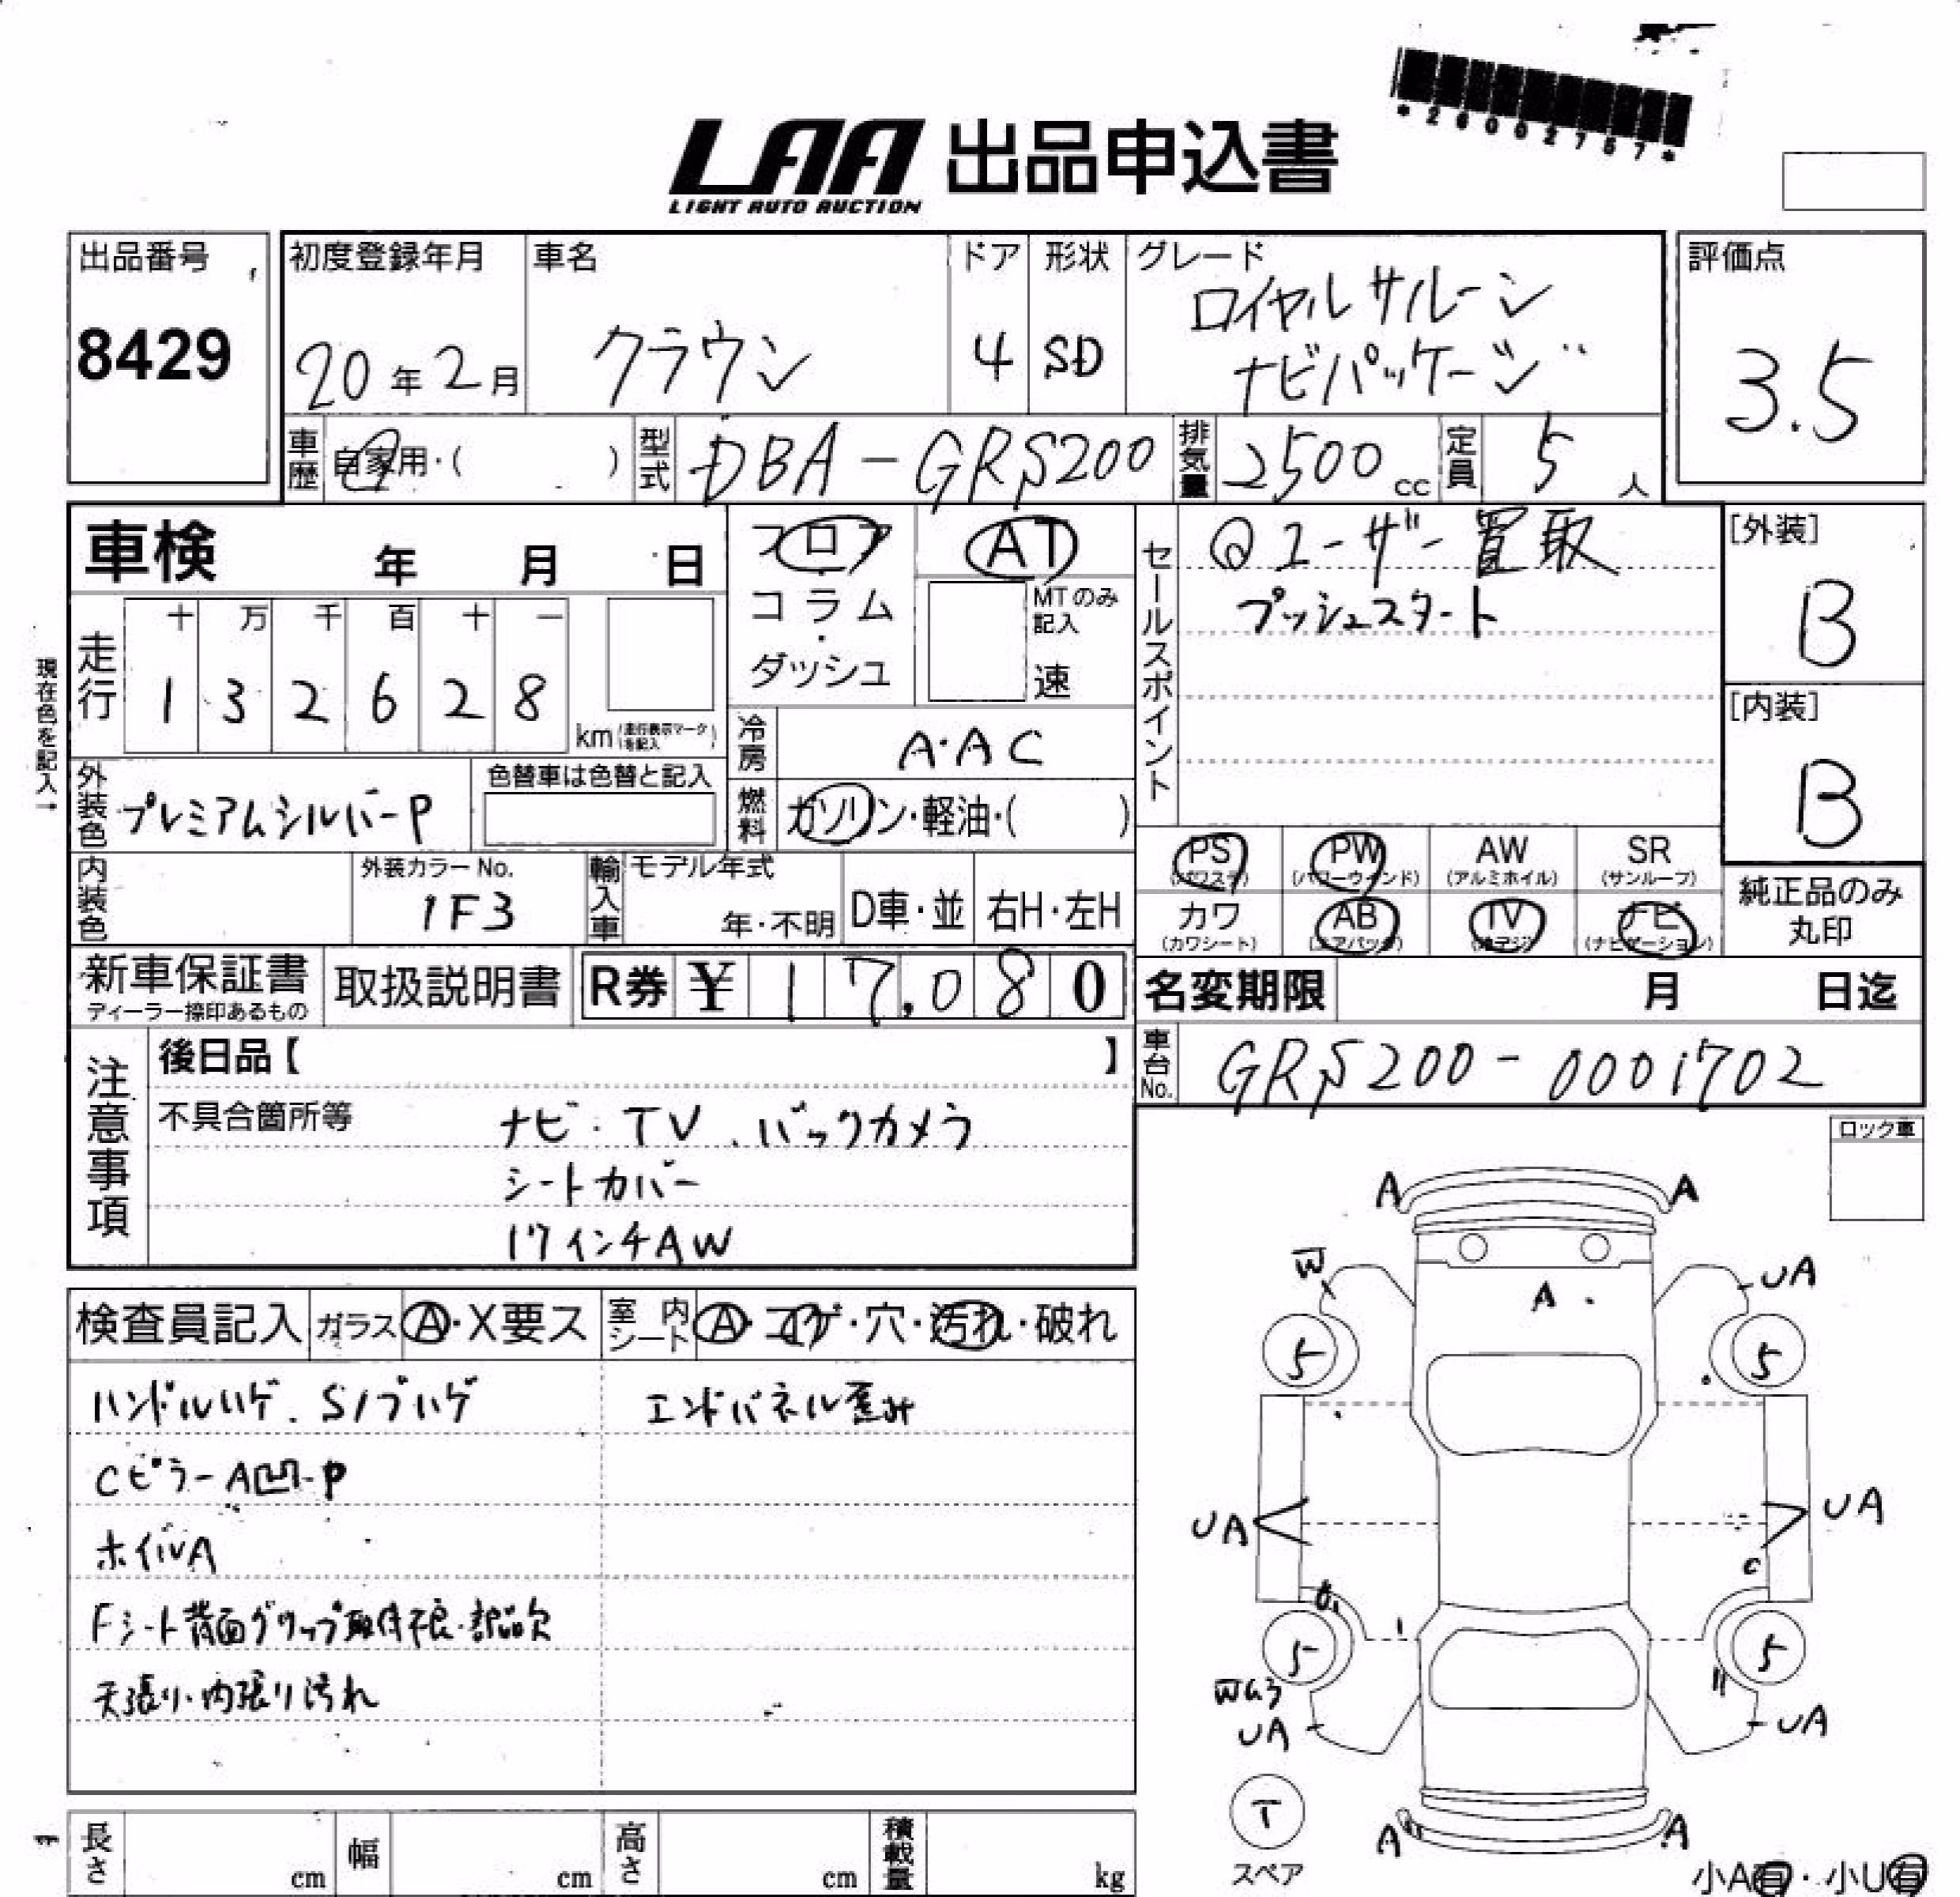 *26002757*
LAA 出品申込書
LIGHT AUTO AUCTION
出品番号
8429
初度登録年月
20年2月
車名
クラウン
ドア
4
形状
SD
グレード
ロイヤルサルーン
ナビパッケージ
評価点
3.5
車歴
自家用・( )
型式
DBA-GRS200
排気量
2500cc
定員
5人
車検 年 月 日
フロア
コラム
・
ダッシュ
AT
MTのみ
記入
速
セールスポイント
@ユーザー買取
プッシュスタート
[外装]
B
[内装]
B
現在色を記入→
走行
十 万 千 百 十 一
1 3 2 6 2 8
km(走行表示マークを記入)
冷房
A・AC
外装色
プレミアムシルバーP
色替車は色替と記入
燃料
ガソリン・軽油・( )
PS
(パワステ)
PW
(パワーウインド)
AW
(アルミホイル)
SR
(サンルーフ)
カワ
(カワシート)
AB
(エアバッグ)
TV
(地デジ)
ナビ
(ナビゲーション)
純正品のみ
丸印
内装色
外装カラーNo.
1F3
輸入車
モデル年式
年・不明
D車・並
右H・左H
新車保証書
ディーラー捺印あるもの
取扱説明書
R券 ¥ 17,080
名変期限 月 日迄
車台No.
GRS200-0001702
注意事項
後日品【 】
不具合箇所等
ナビ・TV、バックカメラ
シートカバー
17インチAW
ロック車
検査員記入
ガラス
A・X要ス
室内シート
A・コゲ・穴・汚れ・破れ
ハンドルハゲ、Sノブハゲ
エンドパネル歪み
CピラーA凹-P
ホイルA
Fシート背面グリップ取付不良・部品欠
天張り・内張り汚れ
A A
W
UA
A
5 5
UA UA
C
5 5
W3
UA UA
T
スペア
A A
小A有・小U有
長さ cm
幅 cm
高さ cm
積載量 kg